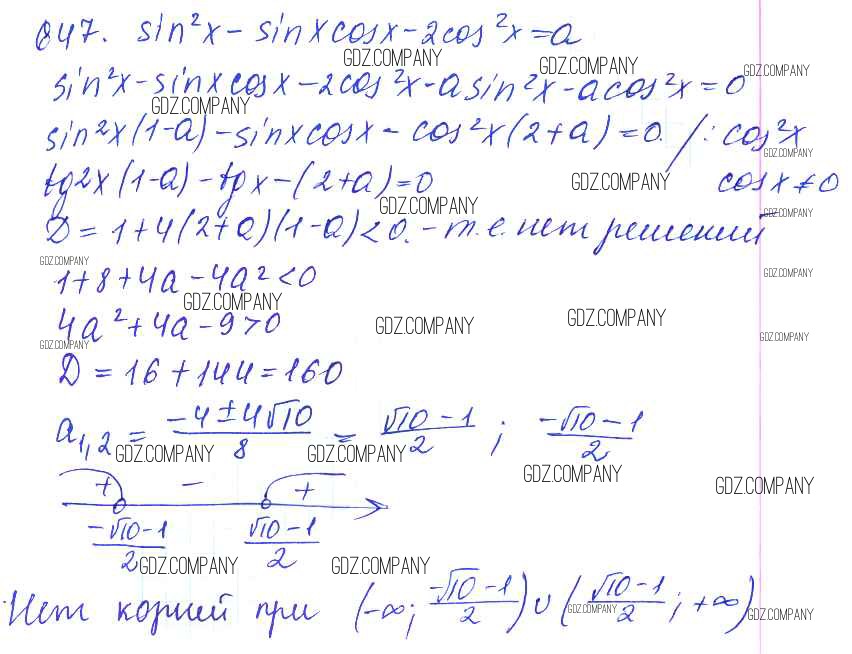 847. sin²x - sinxcosx - 2cos²x = a
GDZ.COMPANY GDZ.COMPANY GDZ.COMPANY
sin²x - sinxcosx - 2cos²x - asin²x - acos²x = 0
GDZ.COMPANY
sin²x(1-a) - sinxcosx - cos²x(2+a) = 0. /: cos²x
GDZ.COMPANY
tg²x(1-a) - tgx - (2+a) = 0 GDZ.COMPANY cosx ≠ 0
GDZ.COMPANY GDZ.COMPANY
D = 1+4(2+a)(1-a) < 0. - т.е. нет решений
GDZ.COMPANY GDZ.COMPANY
1+8+4a-4a² < 0
GDZ.COMPANY
4a²+4a-9 > 0 GDZ.COMPANY GDZ.COMPANY
GDZ.COMPANY GDZ.COMPANY
D = 16+144 = 160
a₁,₂ = (-4±4√10)/8 = (√10-1)/2 ; (-√10-1)/2
GDZ.COMPANY GDZ.COMPANY GDZ.COMPANY GDZ.COMPANY
+ - +
(-√10-1)/2 (√10-1)/2
GDZ.COMPANY GDZ.COMPANY
Нет корней при (-∞; (-√10-1)/2) ∪ ((√10-1)/2; +∞)
GDZ.COMPANY GDZ.COMPANY